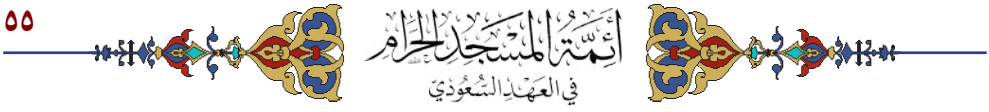 ٥٥
أَئِمَّةُ المَسْجِدِ الحَرَامِ
في العَهْدِ السُّعُوْدِيّ